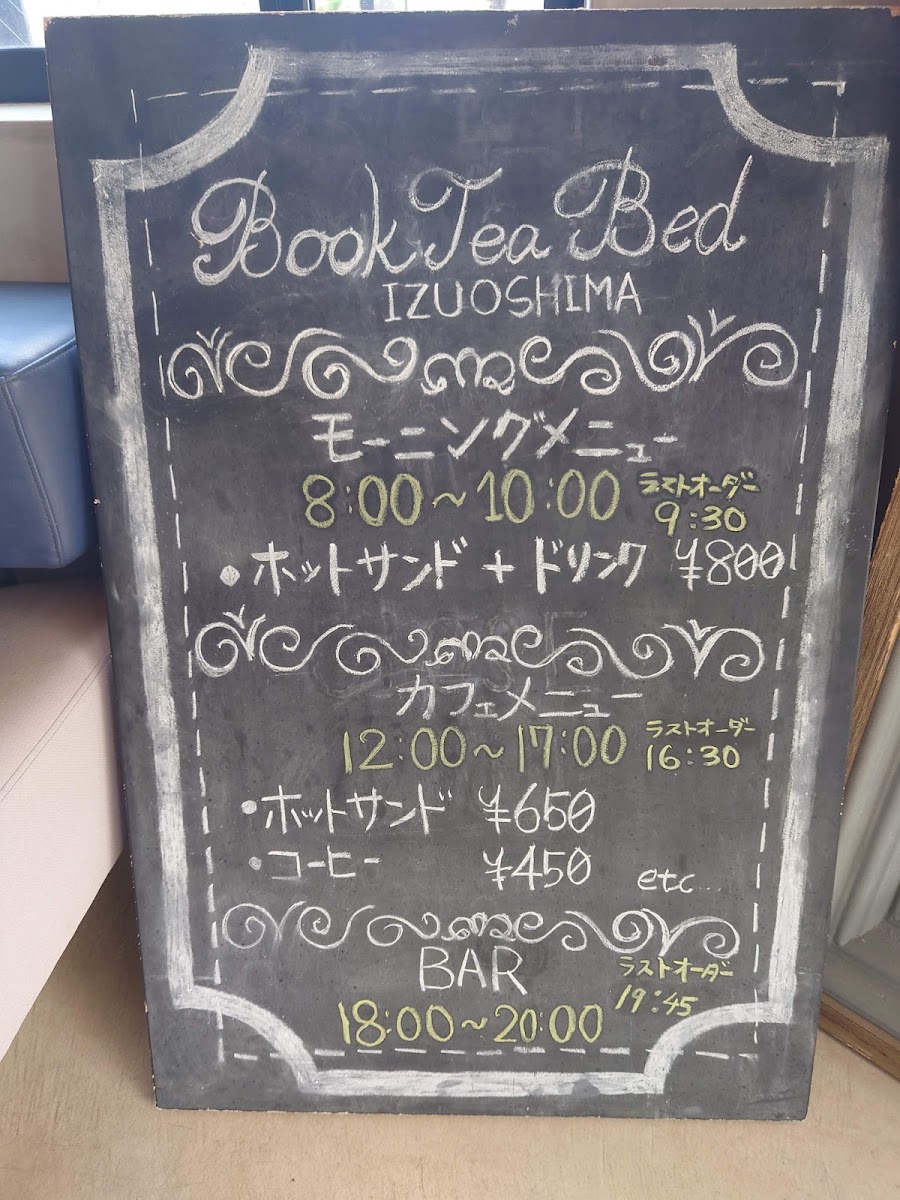 Book Tea Bed
IZUOSHIMA
モーニングメニュー
8:00～10:00 ラストオーダー 9:30
・ホットサンド + ドリンク ¥800
カフェメニュー
12:00～17:00 ラストオーダー 16:30
・ホットサンド ¥650
・コーヒー ¥450 etc...
BAR
18:00～20:00 ラストオーダー 19:45